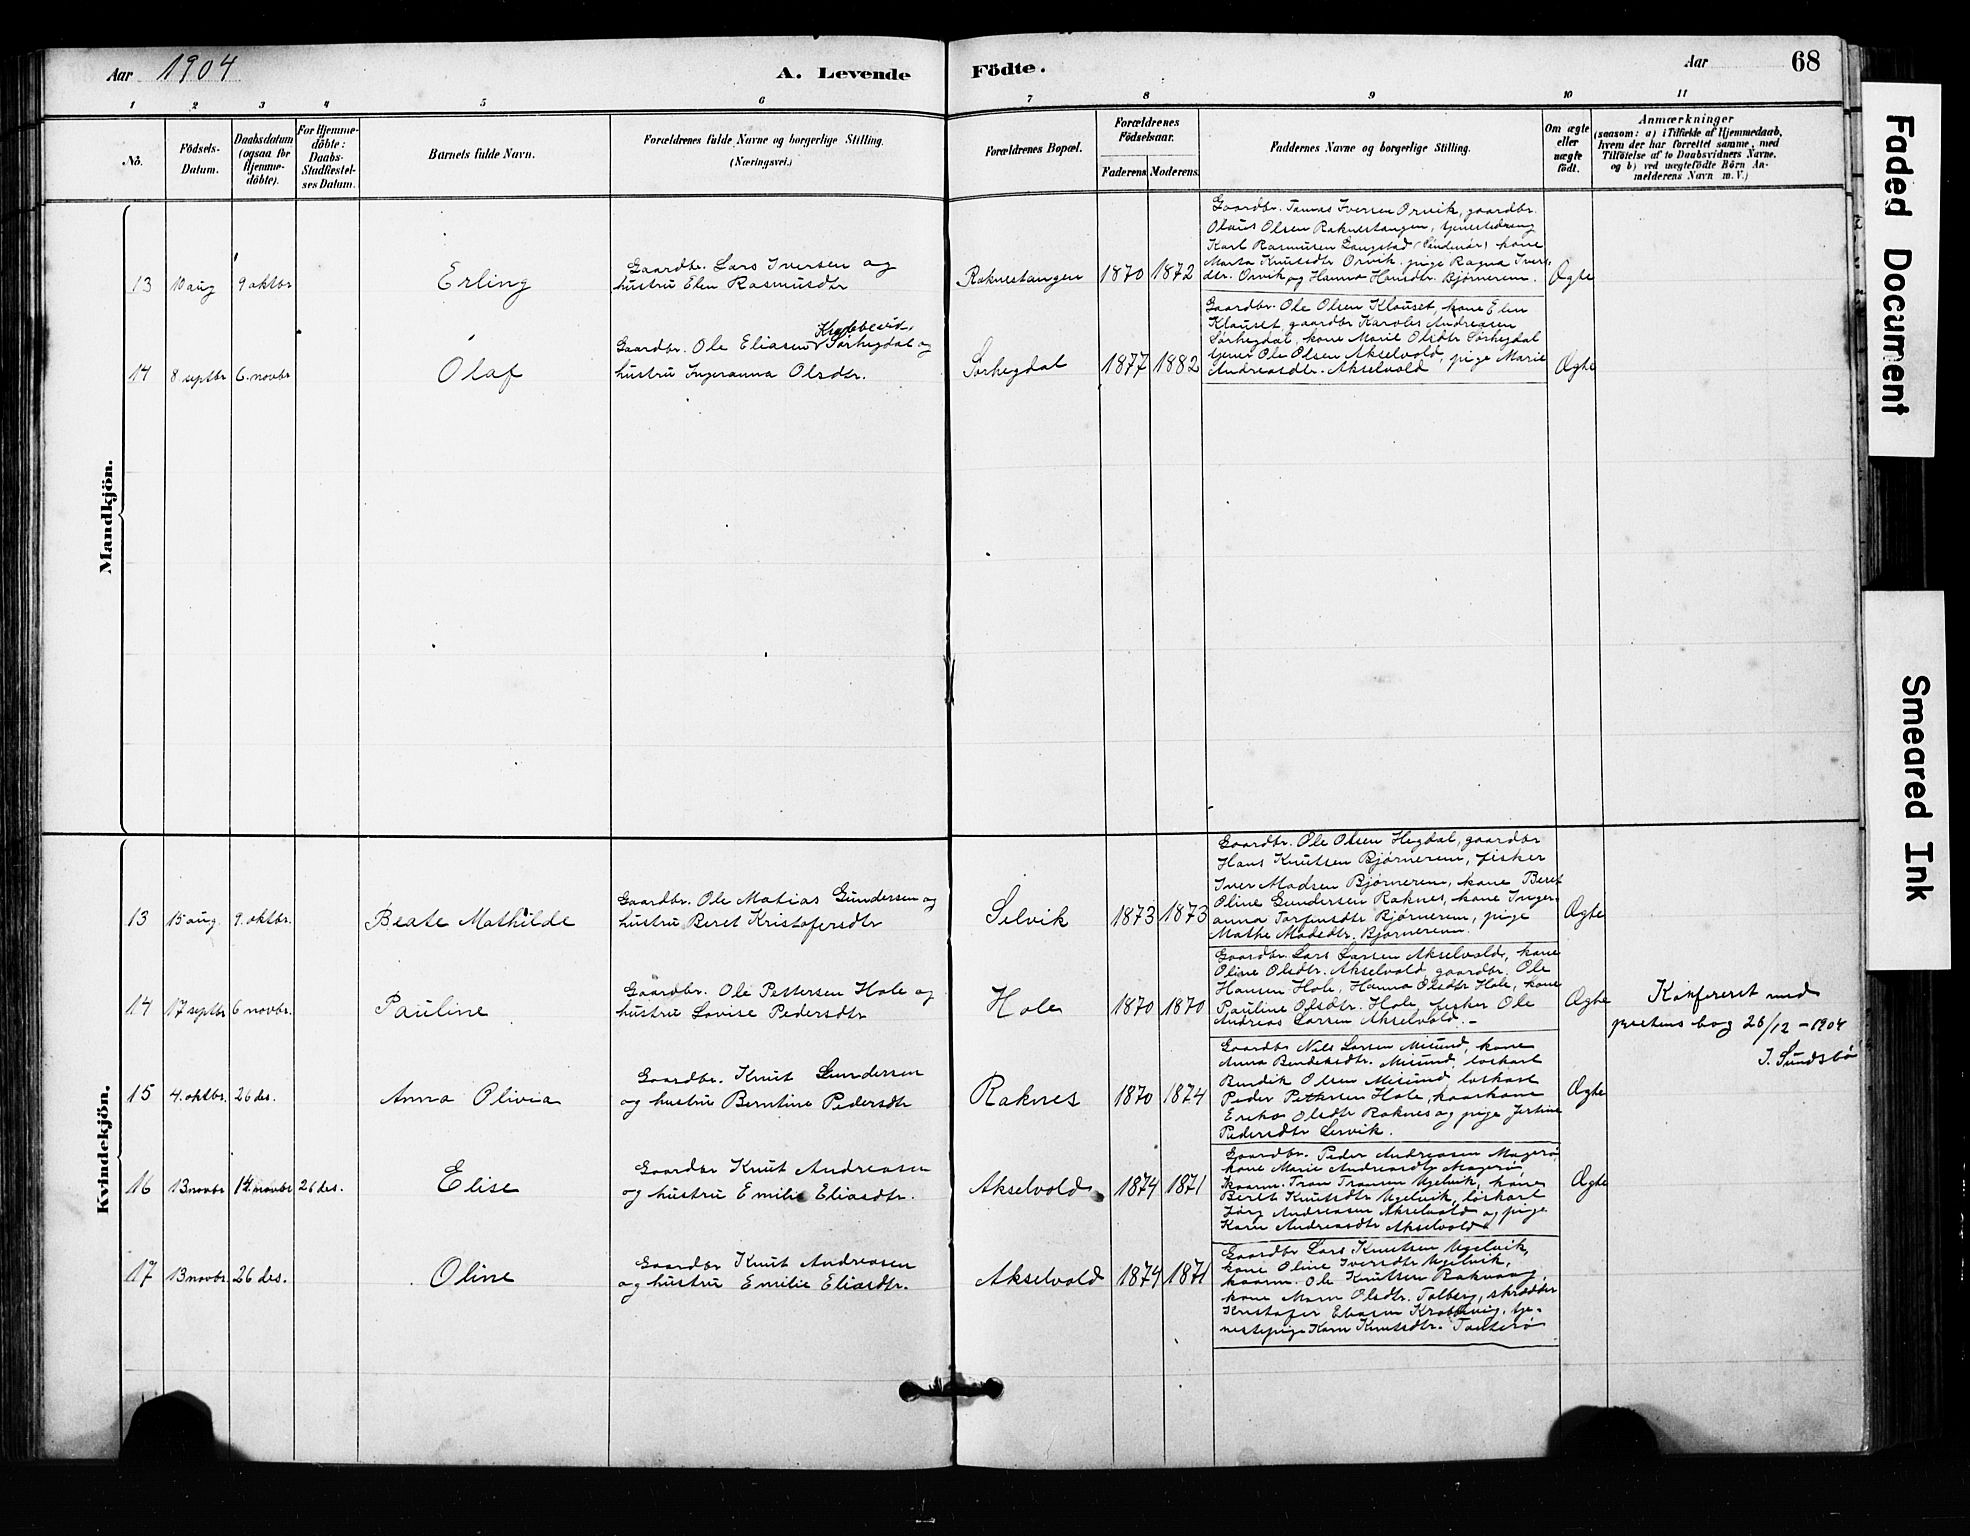 Aar 1904
A. Levende Födte.
Aar
68
1 2 3 4 5 6 7 8 9 10 11
No.
Födsels-
Datum.
Daabsdatum
(ogsaa for
Hjemme-
döbte).
For Hjemme-
döbte:
Daabs-
Stadfæstel-
ses Datum.
Barnets fulde Navn.
Forældrenes fulde Navne og borgerlige Stilling.
(Næringsvei.)
Forældrenes Bopæl.
Forældrenes
Födselsaar.
Faderens. Moderens.
Faddernes Navne og borgerlige Stilling.
Om ægte
eller
uægte
födt.
Anmærkninger
(saasom: a) i Tilfælde af Hjemmedaab,
hvem der har forrettet samme, med
Tilföielse af to Daabsvidners Navne,
og b) ved uægtefödte Börn An-
melderens Navn m. V.)
Mandkjön.
13 10 aug 9 oktbr Erling
Gaardbr. Lars Iversen og
hustru Elen Rasmusdtr
Raknestangen 1870 1872
Gaardbr. Tomas Iversen Orvik, gaardbr.
Olaus Olsen Raknestangen, tjenestedreng
Karl Rasmusen Gangstad (Sandenør) kone
Marta Knutsdtr Orvik, pige Ragna Ivers-
dtr. Orvik og Hanna Hansdtr. Bjørnerem.
Ægte
14 8 septbr 6 novbr Olaf
Krabbevid.
Gaardbr. Ole Eliasen Sørhegdal og
hustru Ingeranna Olsdtr.
Sørhegdal 1877 1882
Gaardbr. Ole Olsen Klauset, kone Elen
Klauset, gaardbr Karoles Andreasen
Sørhegdal, kone Marie Olsdtr Sørhegdal
tjener Ole Olsen Akselvold, pige Marie
Andreasdtr. Akselvold
Ægte
Kvindekjön.
13 15 aug. 9. oktbr. Beate Mathilde
Gaardbr. Ole Matias Gundersen og
hustru Beret Kristofersdtr
Selvik 1873 1873
Gaardbr. Ole Olsen Hegdal, gaardbr
Hans Knutsen Bjørnerem, fisker
Iver Madsen Bjørnerem, kone Beret
Oline Gundersen Raknes, kone Inger-
anna Torfinsdtr Bjørnerem, pige
Mathe Madsdtr. Bjørnerem.
Ægte
14 17 septbr 6 novbr. Pauline
Gaardbr. Ole Pettersen Hole og
hustru Lovise Pedersdtr
Hole 1870 1870
Gaardbr. Lars Larsen Akselvold, kone
Oline Olsdtr. Akselvold, gaardbr. Ole
Hansen Hole, Hanna Olsdtr Hole, kone
Pauline Olsdtr. Hole, fisker Ole
Andreas Larsen Akselvold. -
Ægte
Konfereret med
prestens bog 26/12 - 1904
J. Sundsbø
15 4. oktbr. 26 des. Anna Olivia
Gaardbr. Knut Gundersen
og hustru Berntine Pedersdtr
Raknes 1870 1874
Gaardbr Nils Larsen Misund, kone
Anna Bendiksdtr. Misund, løskarl
Bendik Olsen Misund, løskarl
Peder Pettersen Hole, kaarkone
Erika Olsdtr Raknes og pige Jertine
Pedersdtr Lervik.
Ægte
16 13 novbr 14. novbr 26 des. Elise
Gaardbr Knut Andreasen
og hustru Emilie Eliasdtr.
Akselvold 1874 1871
Gaardbr. Peder Andreasen Magerø,
kone Marie Andreasdtr Magerø,
kaarm. Tron Tronsen Ugelvik, kone
Beret Knutsdtr Ugelvik, løskarl
Jørg Andreasen Akselvold og pige
Karn Andreasdtr Akselvold
Ægte
17 13 novbr. 26 des. Oline
Gaardbr Knut Andreasen
og hustru Emilie Eliasdtr.
Akselvold 1874 1871
Gaardbr Lars Knutsen Ugelvik,
kone Oline Iversdtr Ugelvik,
kaarm. Ole Knutsen Rakvaag,
kone Marn Olsdtr. Talberg, skrædder
Kristofer Eliasen Krabbevig, tje-
nestepige Karn Knutsdtr.
Faded Document
Smeared Ink